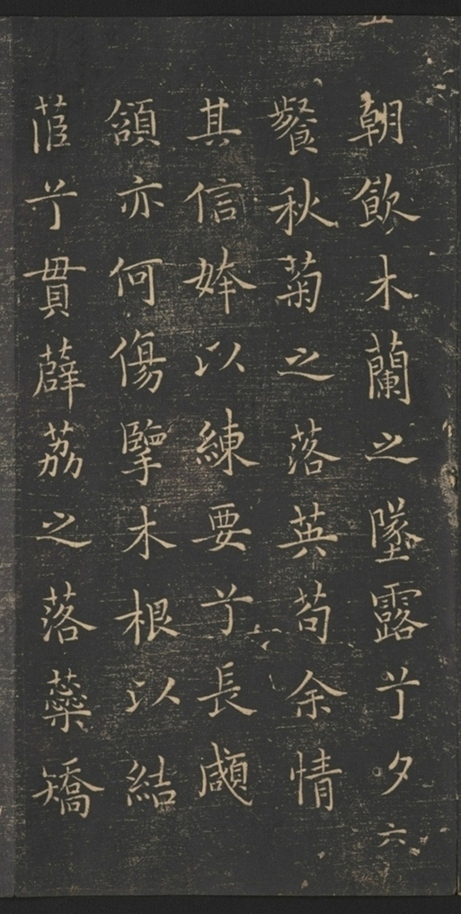 朝飲木蘭之墜露兮夕
六
餐秋菊之落英苟余情
其信姱以練要兮長顑
頷亦何傷擥木根以結
茝兮貫薜荔之落蘂矯